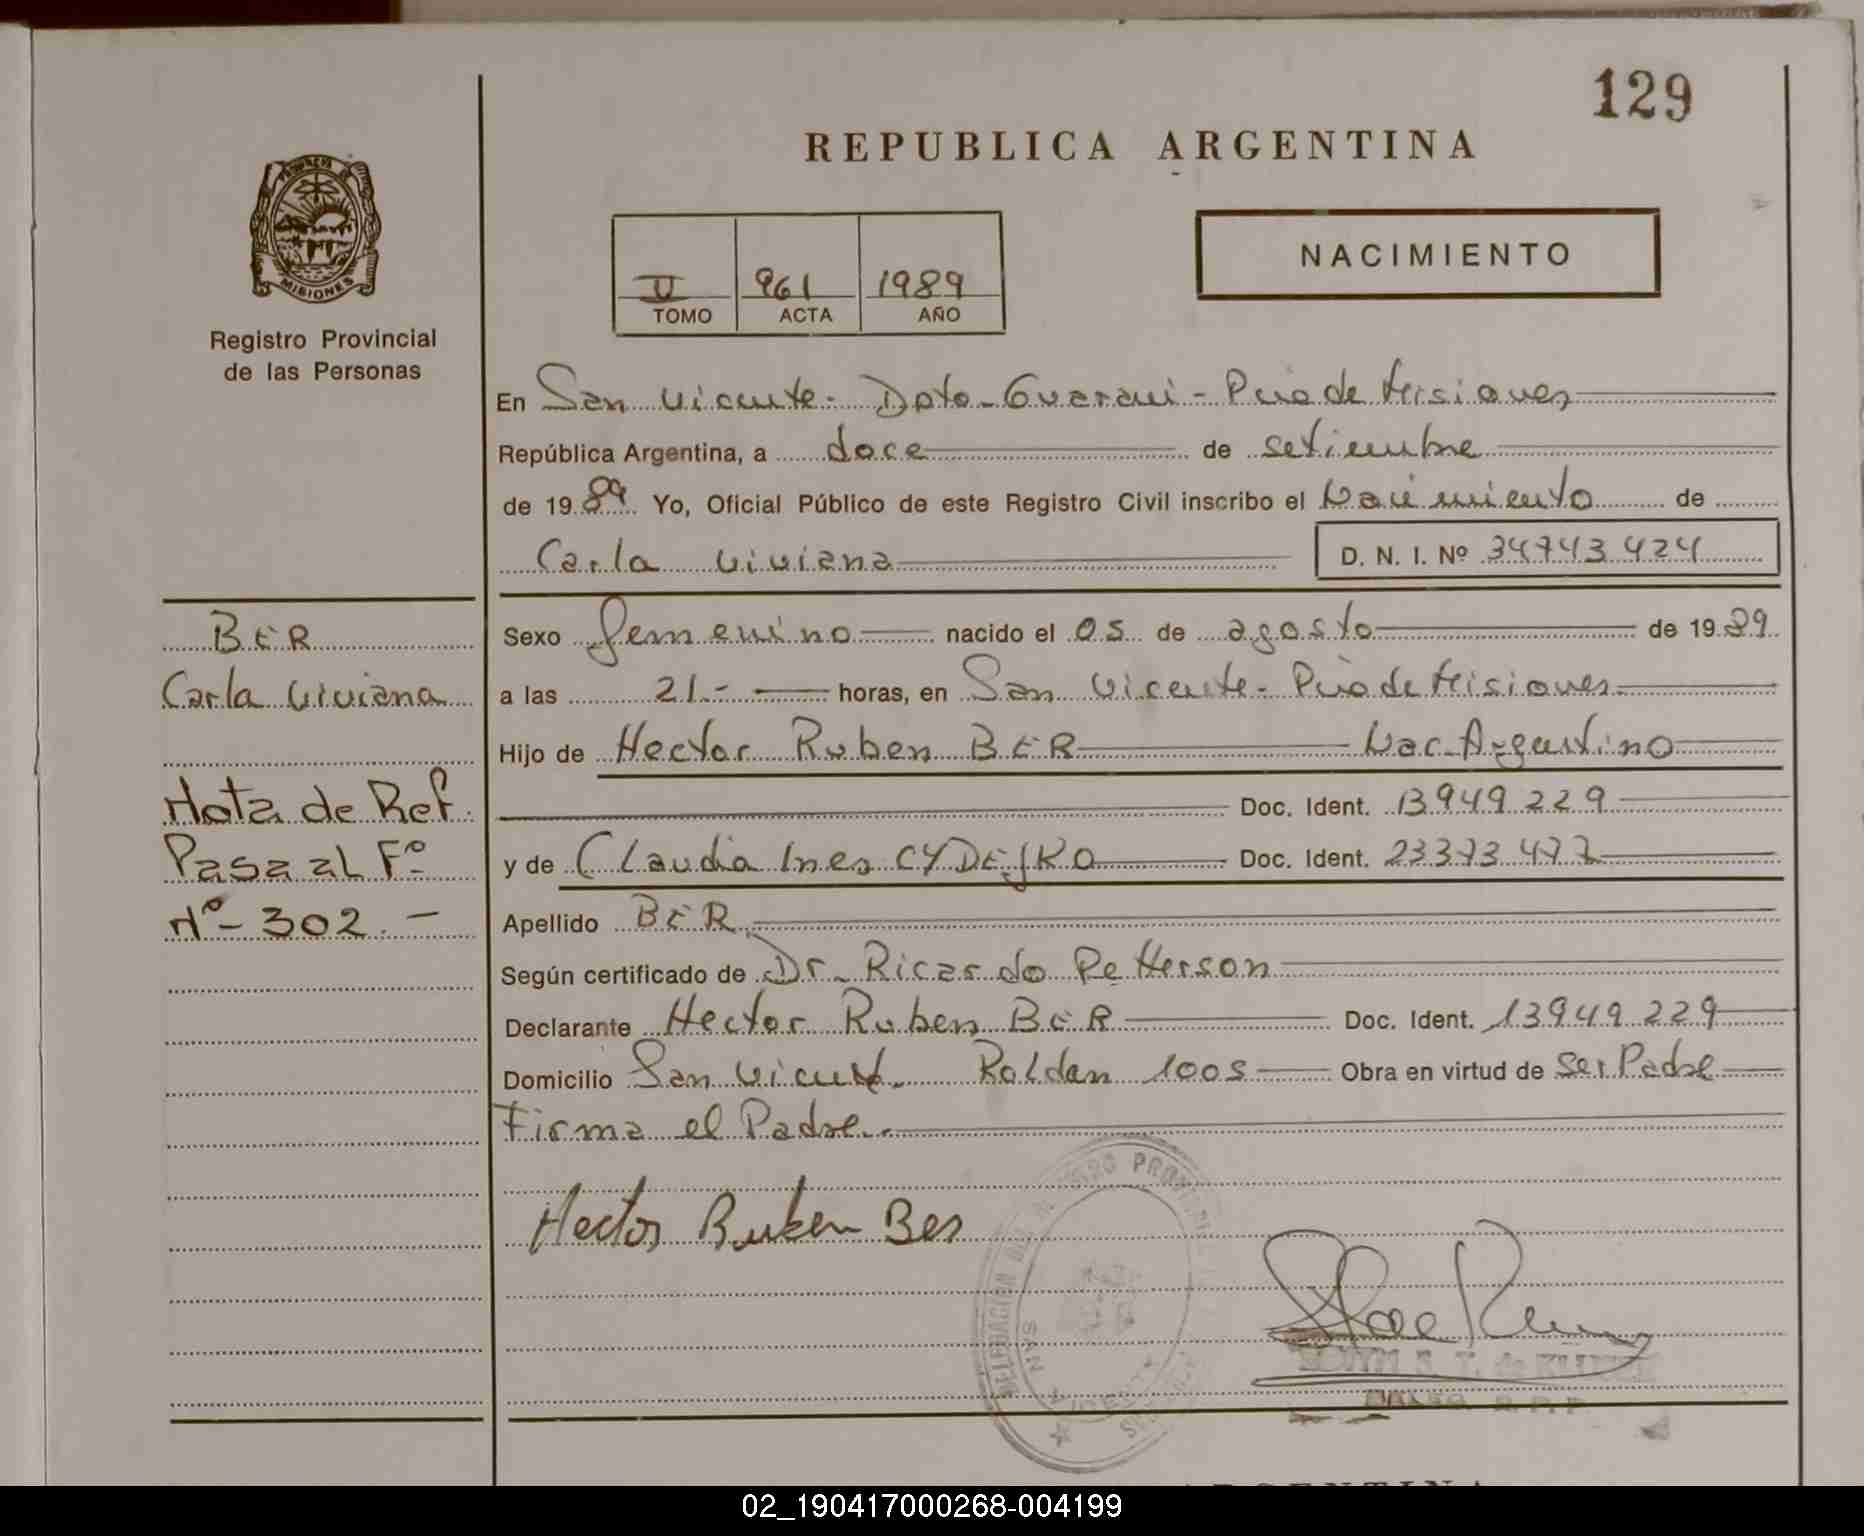 129
REPUBLICA ARGENTINA
PROVINCIA DE
MISIONES
Registro Provincial
de las Personas
II 961 1989
TOMO ACTA AÑO
NACIMIENTO
En San Vicente - Dpto - Guarani - Pcia de Misiones
República Argentina, a doce de setiembre
de 1989 Yo, Oficial Público de este Registro Civil inscribo el Nacimiento de
Carla Viviana D. N. I. Nº 34743424
BER
Carla Viviana
Nota de Ref.
Pasa al Fº
Nº - 302. -
Sexo femenino nacido el 05 de agosto de 1989
a las 21.- horas, en San Vicente - Pcia de Misiones
Hijo de Hector Ruben BER Nac. Argentino
Doc. Ident. 13949229
y de Claudia Ines CYDEJKO Doc. Ident. 23373477
Apellido BER
Según certificado de Dr. Ricardo Petterson
Declarante Hector Ruben BER Doc. Ident. 13949229
Domicilio San Vicente. Roldan 1005 Obra en virtud de Ser Padre
Firma el Padre.-
Hector Ruben Ber
DELEGACION DEL REGISTRO PROVINCIAL
SAN VICENTE
02_190417000268-004199